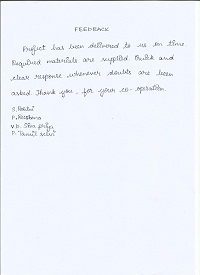 FEEDBACK
Project has been delivered to us on time.
Required materials are supplied. Quick and
clear response whenever doubts are been
asked. Thank you, for your co-operation.
P. Reshma
V.R. Siva priya
P. Tamil selvi